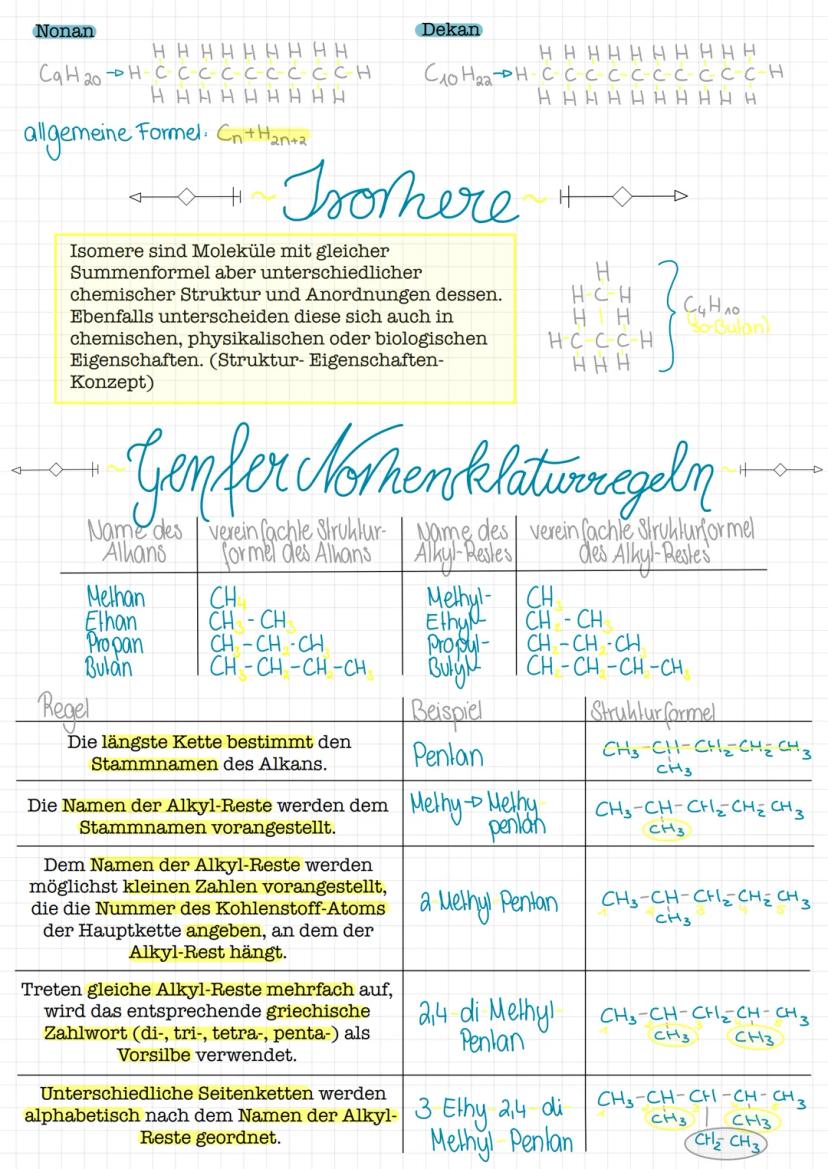 Nonan
Dekan
H H H H H H H H H
C9H20 → H-C-C-C-C-C-C-C-C-C-H
H H H H H H H H H
H H H H H H H H H H
C10H22 → H-C-C-C-C-C-C-C-C-C-C-H
H H H H H H H H H H
allgemeine Formel: Cn+H2n+2
~ Isomere ~
Isomere sind Moleküle mit gleicher
Summenformel aber unterschiedlicher
chemischer Struktur und Anordnungen dessen.
Ebenfalls unterscheiden diese sich auch in
chemischen, physikalischen oder biologischen
Eigenschaften. (Struktur- Eigenschaften-
Konzept)
H
H-C-H
H | H
H-C-C-C-H
H H H
C4H10
(Iso-Butan)
~ Genfer Nomenklaturregeln ~
Name des
Alkans
vereinfachte Struktur-
formel des Alkans
Name des
Alkyl-Restes
vereinfachte Strukturformel
des Alkyl-Restes
Methan
CH4
Methyl-
CH3
Ethan
CH3-CH3
Ethyl-
CH2-CH3
Propan
CH3-CH2-CH3
Propyl-
CH2-CH2-CH3
Butan
CH3-CH2-CH2-CH3
Butyl-
CH2-CH2-CH2-CH3
Regel
Beispiel
Strukturformel
Die längste Kette bestimmt den
Stammnamen des Alkans.
Pentan
CH3-CH-CH2-CH2-CH3
CH3
Die Namen der Alkyl-Reste werden dem
Stammnamen vorangestellt.
Methy→Methy
pentan
CH3-CH-CH2-CH2-CH3
CH3
Dem Namen der Alkyl-Reste werden
möglichst kleinen Zahlen vorangestellt,
die die Nummer des Kohlenstoff-Atoms
der Hauptkette angeben, an dem der
Alkyl-Rest hängt.
2 Methyl Pentan
CH3-CH-CH2-CH2-CH3
1 2 3 4 5
CH3
Treten gleiche Alkyl-Reste mehrfach auf,
wird das entsprechende griechische
Zahlwort (di-, tri-, tetra-, penta-) als
Vorsilbe verwendet.
2,4-di Methyl-
Pentan
CH3-CH-CH2-CH-CH3
CH3 CH3
Unterschiedliche Seitenketten werden
alphabetisch nach dem Namen der Alkyl-
Reste geordnet.
3-Ethy-2,4-di-
Methyl-Pentan
CH3-CH-CH-CH-CH3
CH3 CH3
CH2-CH3